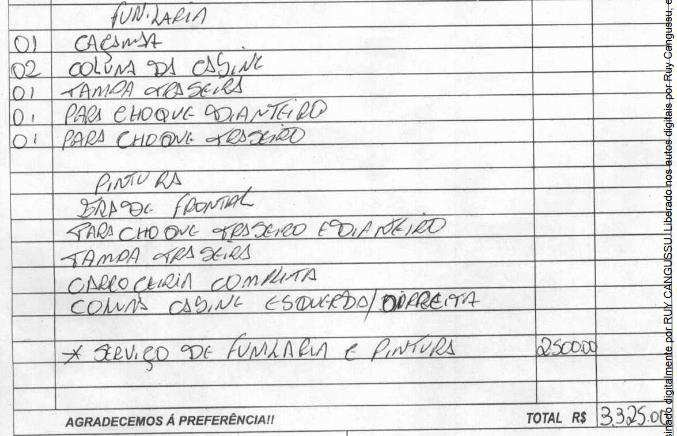 FUNILARIA
01 CAÇAMBA
02 COLUNA DA CABINE
01 TAMPA TRASEIRA
01 PARA CHOQUE DIANTEIRO
01 PARA CHOQUE TRASEIRO
PINTURA
GRADE FRONTAL
PARA CHOQUE TRASEIRO E DIANTEIRO
TAMPA TRASEIRA
CARROCERIA COMPLETA
COLUNA CABINE ESQUERDA/DIRREITA
* SERVIÇO DE FUNILARIA E PINTURA 2500.00
AGRADECEMOS Á PREFERÊNCIA!! TOTAL R$ 3.325.00
sinado digitalmente por RUY CANGUSSU. Liberado nos autos digitais por Ruy Cangussu, e